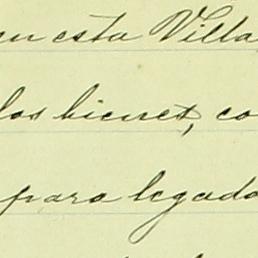 en esta Villa
los bienes, co
para legado